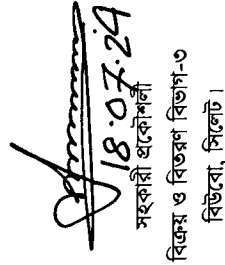 18.07.24
সহকারী প্রকৌশলী
বিক্রয় ও বিতরণ বিভাগ-৩
বিউবো, সিলেট।